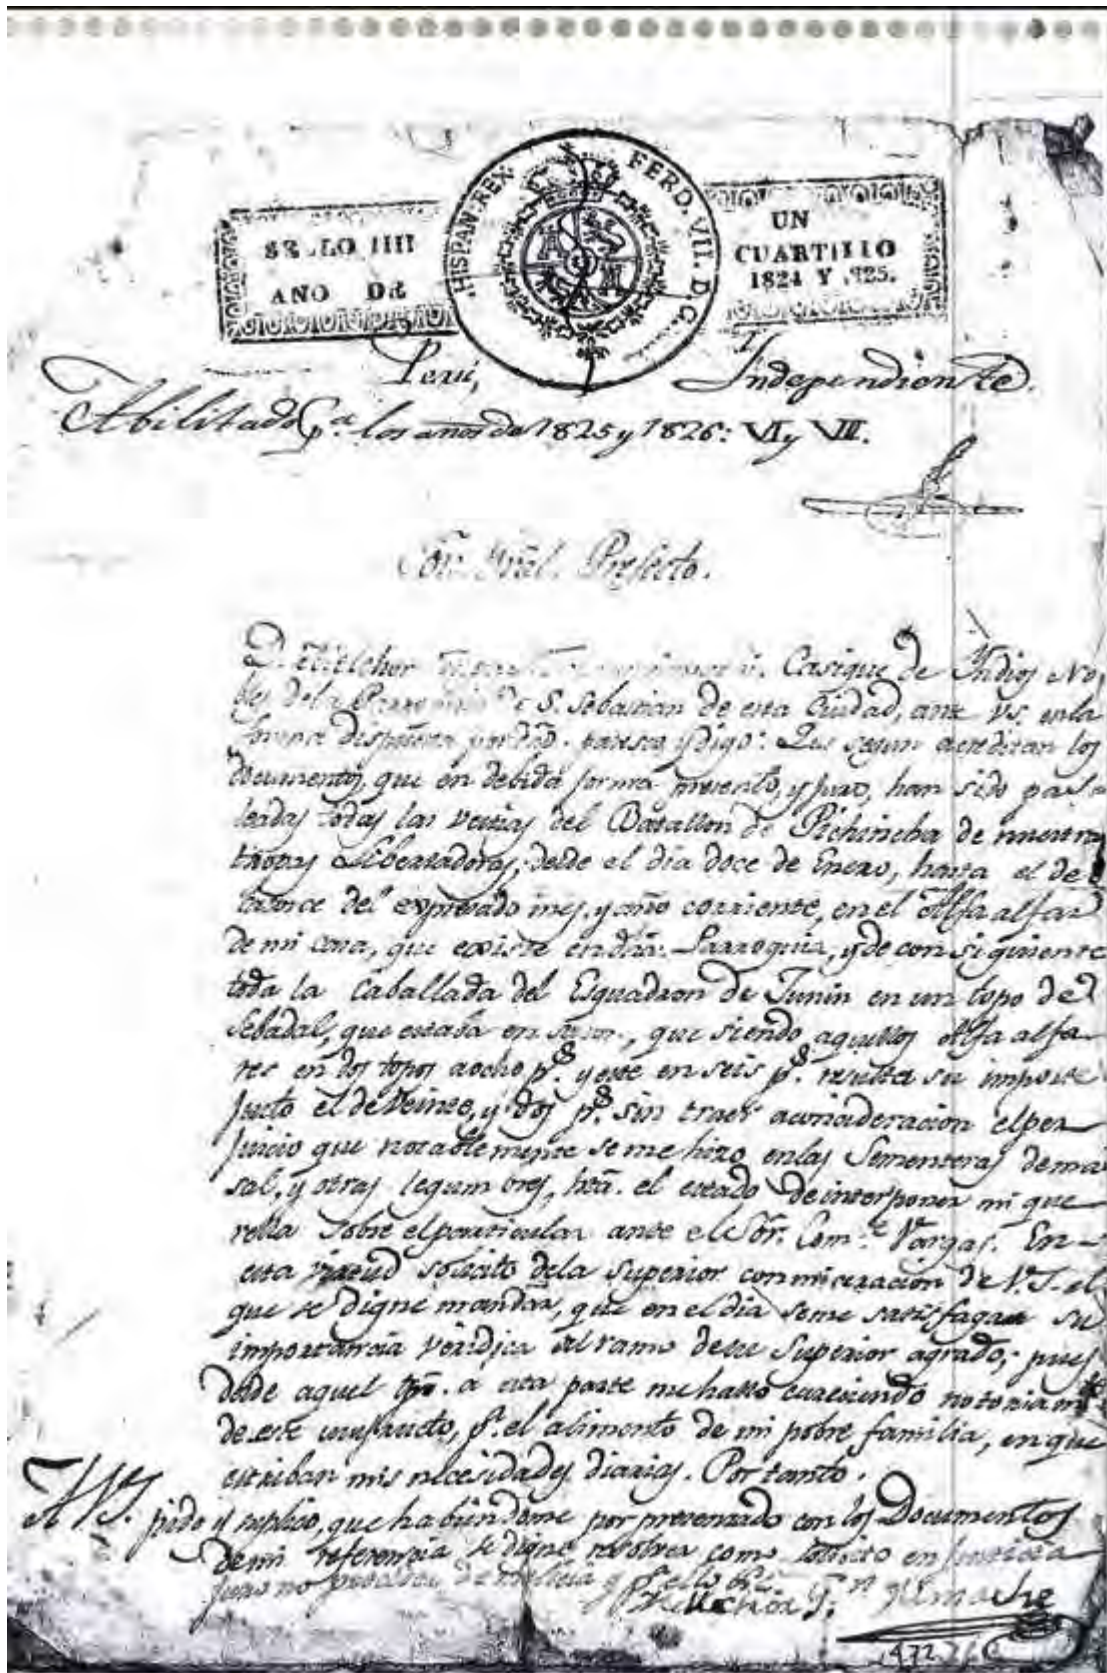 SELLO IIII
AÑO DE
HISPAN. REX
FERD. VII. D. G.
UN
CUARTILLO
1824 Y 825.
Perú, Independiente.
Abilitado pa. los años de 1825 y 1826: VI y VII.
Sor. Gral. Prefecto.
D. Melchor Casique de Yndios No-
bles de la Parroquia de S. Sebastian de esta Ciudad, ante VS. en la
forma dispuesta por dro. paresco y digo: Que segun acreditan los
documentos, que en debida forma presento, y juro, han sido pas-
teadas todas las vestias del Batallon de Pichincha de nuestras
tropas Libertadoras, desde el dia doce de Enero, hasta el de
catorce del expresado mes, y año corriente, en el Alfa alfar
de mi casa, que existe en dha. Parroquia, y de consiguiente
toda la Caballada del Esquadron de Junin en un topo de
Sebadal, que estaba en, que siendo aquellos Alfa alfa-
res en dos topos a ocho ps. y este en seis ps. resulta su importe
justo el de Veinte, y dos ps. sin traer aconcideracion el per
juicio que notablemente se me hizo en las Sementeras de mai
sal, y otras legumbres, hta. el estado de interponer mi que
rella sobre el particular ante el Sor. Come. Vargas. En-
esta virtud solicito dela Superior conmiceracion de V.S. el
que se digne mandar, que en el dia se me satisfagan su
importancia veridica al ramo de su Superior agrado; pues
desde aquel tpo. a esta parte me hallo careciendo notoriamte.
de este usufructo, pa. el alimento de mi pobre familia, en que
estriban mis necesidades diarias. Por tanto.
A VS. pido y suplico, que habiendome por presentado con los Documentos
de mi referencia se digne resolver como solicito en justicia
juro no proceder de malicia y pa. ello &a.
Melchor